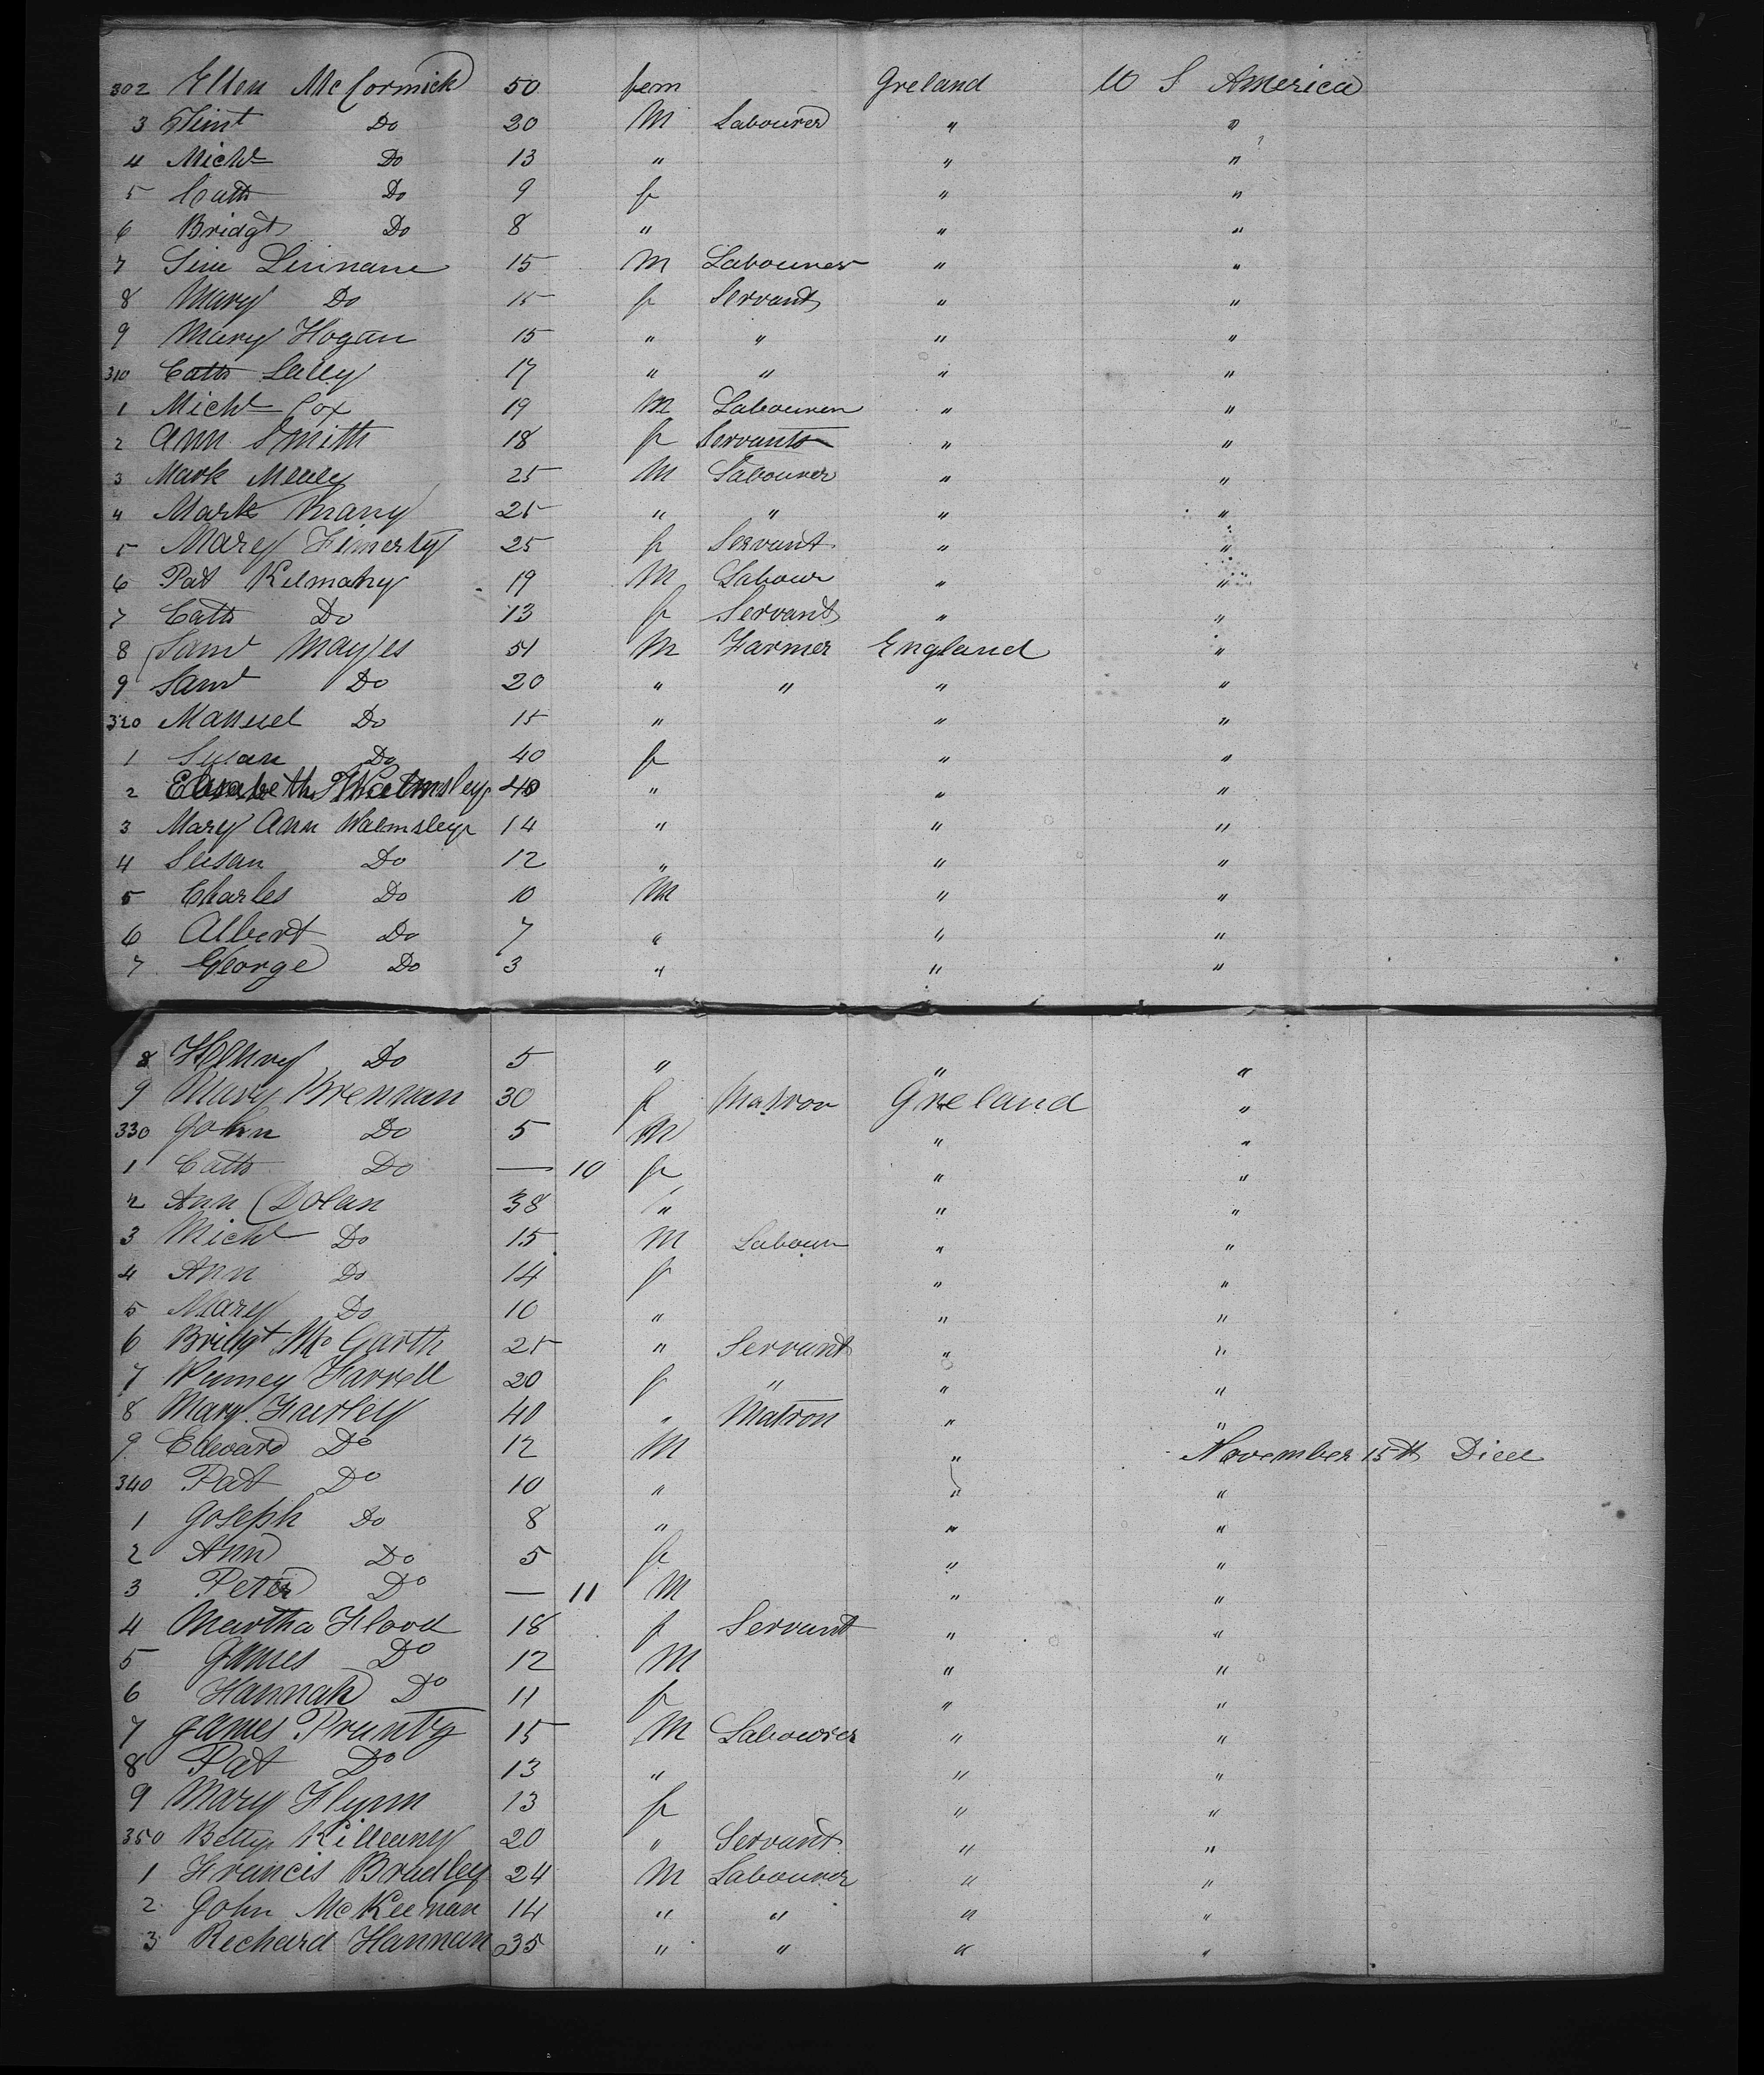 302 Ellen McCormick 50 fem Ireland U S America
3 Do 20 M Labourer " "
4 Michl Do 13 " " "
5 Cath Do 9 f " "
6 Bridgt Do 8 " " "
7 Linnane 15 M Labourer " "
8 Mary Do 15 f Servant " "
9 Mary Hogan 15 " " " "
310 Cath Lally 17 " " " "
1 Michl Cox 19 M Labourer " "
2 Ann Smith 18 f Servants " "
3 Mark 25 M Labourer " "
4 Mark 25 " " " "
5 Mary Finnerty 25 f Servant " "
6 Pat Kilmahy 19 M Labour " "
7 Cath Do 13 f Servant " "
8 Saml Mayes 51 M Farmer England "
9 Saml Do 20 " " " "
320 Manuel Do 15 " " "
1 Susan Do 40 f " "
2 Elisabeth Walmsley 40 " " "
3 Mary Ann Walmsley 14 " " "
4 Susan Do 12 " " "
5 Charles Do 10 M " "
6 Albert Do 7 " " "
7 George Do 3 " " "
8 Henry Do 5 " " "
9 Mary Brennan 30 f Matron Ireland "
330 John Do 5 M " "
1 Cath Do — 10 f " "
2 Ann Dolan 38 " " "
3 Michl Do 15 M Labour " "
4 Ann Do 14 f " "
5 Mary Do 10 " " "
6 Bridgt McGarth 25 " Servant " "
7 Farrell 20 f " " "
8 Mary Farley 40 " Matron " "
9 Edward Do 12 M " November 15th Died
340 Pat Do 10 " " "
1 Joseph Do 8 " " "
2 Ann Do 5 f " "
3 Peter Do — 11 M " "
4 Martha Flood 18 f Servant " "
5 James Do 12 M " "
6 Hannah Do 11 f " "
7 James Prunty 15 M Labourer " "
8 Pat Do 13 " " "
9 Mary Flynn 13 f " "
350 Betty Killeany 20 " Servant " "
1 Francis Bradley 24 M Labourer " "
2 John McKeenan 14 " " " "
3 Richard Hannan 35 " " " "